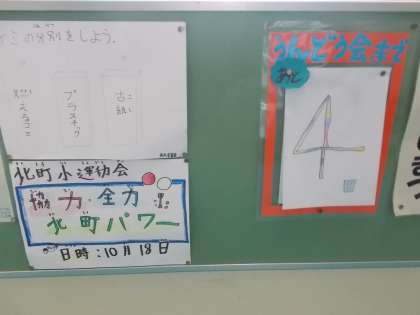 ゴミの分別をしよう.
燃えるゴミ
プラスチック
古紙
北町小運動会
協力・全力
北町パワー
日時:10月18日
うんどう会まで
あと
4